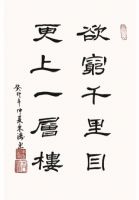 欲窮千里目
更上一層樓
年仲夏